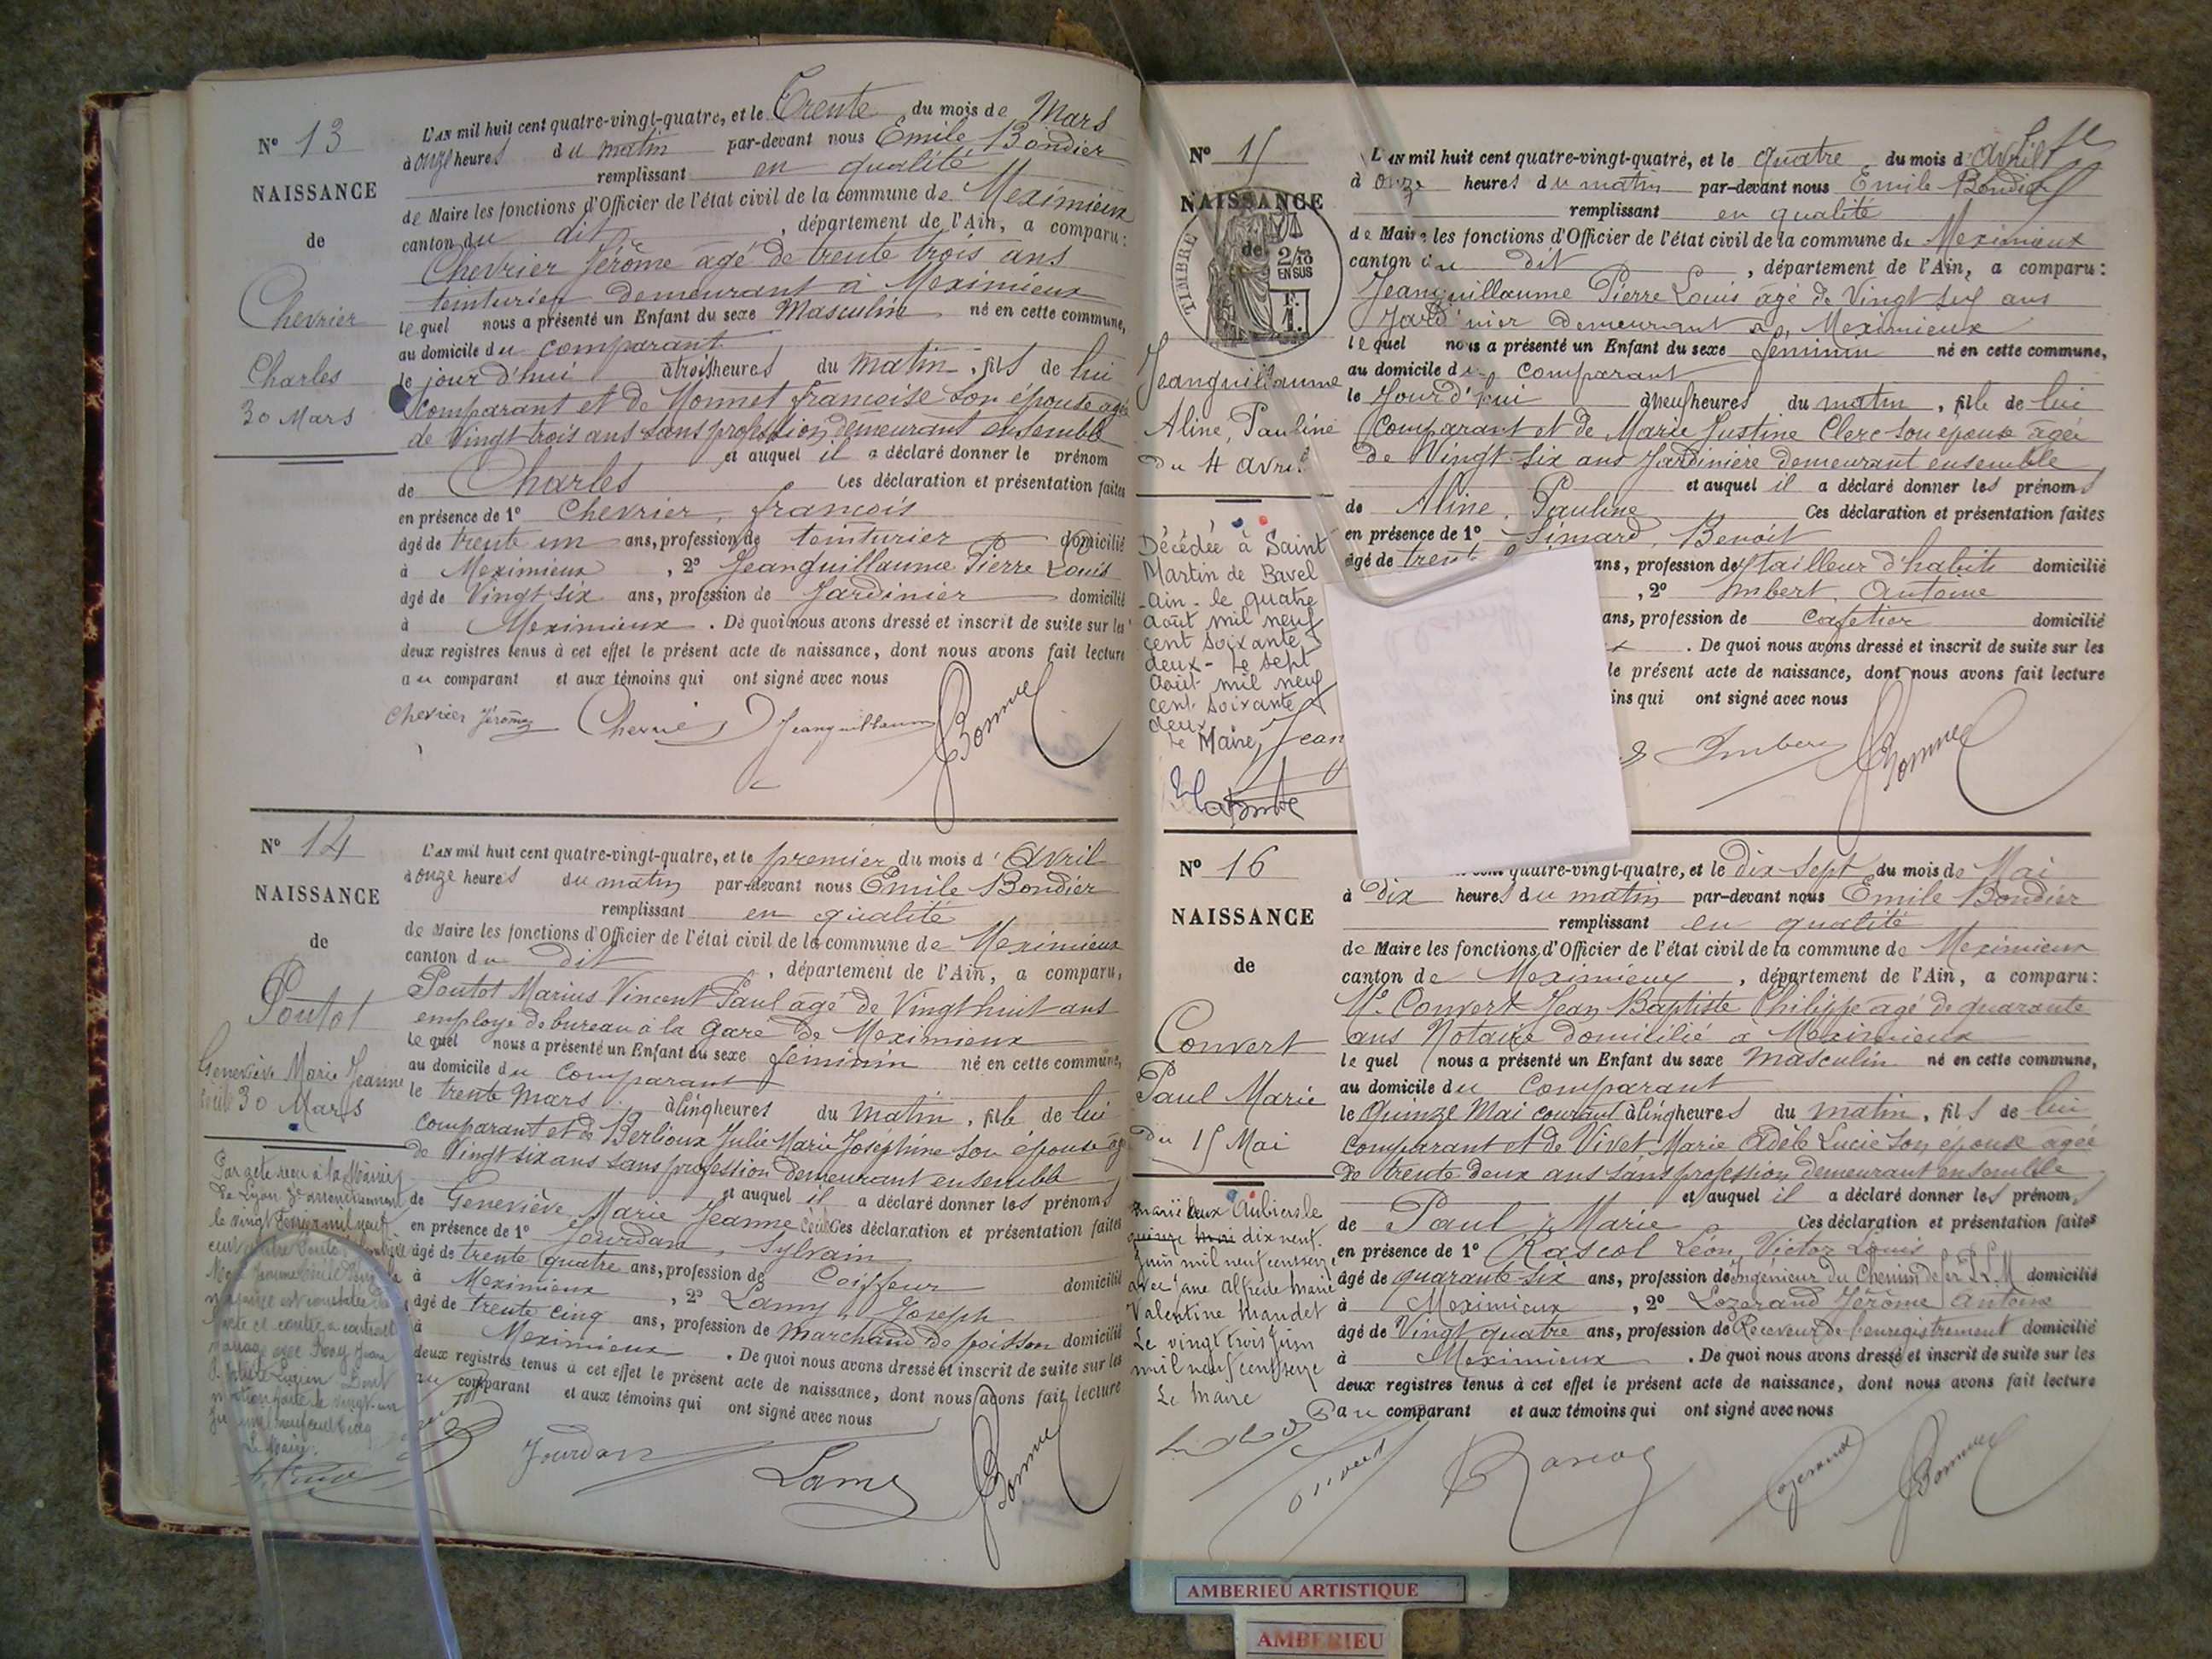 N° 13
NAISSANCE
de
Chevrier
Charles
30 Mars
L'AN mil huit cent quatre-vingt-quatre, et le Trente du mois de Mars
à onze heures du matin par-devant nous Emile Bondier
remplissant en qualité
de Maire les fonctions d'Officier de l'état civil de la commune de Meximieux
canton du dit, département de l'Ain, a comparu:
Chevrier Jérôme agé de trente trois ans
teinturier demeurant à Meximieux
lequel nous a présenté un Enfant du sexe Masculin né en cette commune,
au domicile du comparant
le jour d'hui à trois heures du matin, fils de lui
comparant et de Monnet francoise son épouse agée
de Vingt trois ans sans profession demeurant ensemble
et auquel il a déclaré donner le prénom
de Charles Ces déclaration et présentation faites
en présence de 1° Chevrier, francois
âgé de trente un ans, profession de teinturier domicilié
à Meximieux, 2° Jeanguillaume Pierre Louis
âgé de Vingt six ans, profession de Jardinier domicilié
à Meximieux. De quoi nous avons dressé et inscrit de suite sur les
deux registres tenus à cet effet le présent acte de naissance, dont nous avons fait lecture
au comparant et aux témoins qui ont signé avec nous
Chevrier Jérôme Jeanguillaume
N° 14
NAISSANCE
de
Poutot
Geneviève Marie Jeanne
30 Mars
L'AN mil huit cent quatre-vingt-quatre, et le premier du mois d'Avril
à onze heures du matin par-devant nous Emile Bondier
remplissant en qualité
de Maire les fonctions d'Officier de l'état civil de la commune de Meximieux
canton du dit, département de l'Ain, a comparu,
Poutot Marius Vincent Paul agé de Vingt huit ans
employé de bureau à la Gare de Meximieux
lequel nous a présenté un Enfant du sexe féminin né en cette commune,
au domicile du comparant
le trente Mars à cinq heures du matin, fille de lui
comparant et de Berlioux Julie Marie Joséphine son épouse agée
de Vingt six ans sans profession demeurant ensemble
et auquel il a déclaré donner les prénoms
de Geneviève Marie Jeanne Ces déclaration et présentation faites
en présence de 1° Jourdan, Sylvain
âgé de trente quatre ans, profession de Coiffeur domicilié
à Meximieux, 2° Lamy, Joseph
âgé de trente cinq ans, profession de marchand de poisson domicilié
à Meximieux. De quoi nous avons dressé et inscrit de suite sur les
deux registres tenus à cet effet le présent acte de naissance, dont nous avons fait lecture
au comparant et aux témoins qui ont signé avec nous
Par acte reçu à la Mairie
de Lyon
Le Maire.
Jourdan Lamy
N° 15
NAISSANCE
de
TIMBRE
2/10
EN SUS
Jeanguillaume
Aline, Pauline
Du 4 avril
L'AN mil huit cent quatre-vingt-quatre, et le quatre du mois d'avril
à onze heures du matin par-devant nous Emile Bondier
remplissant en qualité
de Maire les fonctions d'Officier de l'état civil de la commune de Meximieux
canton du dit, département de l'Ain, a comparu:
Jeanguillaume Pierre Louis agé de Vingt six ans
Jardinier demeurant à Meximieux
lequel nous a présenté un Enfant du sexe féminin né en cette commune,
au domicile du comparant
le Jour d'hui à neuf heures du matin, fille de lui
Comparant et de Marie Justine Clerc son épouse agée
de Vingt-six ans Jardinière demeurant ensemble
et auquel il a déclaré donner les prénoms
de Aline, Pauline Ces déclaration et présentation faites
en présence de 1° Simard, Benoit
âgé de ans, profession de tailleur d'habits domicilié
, 2° Imbert, Antoine
ans, profession de cafetier domicilié
. De quoi nous avons dressé et inscrit de suite sur les
le présent acte de naissance, dont nous avons fait lecture
ins qui ont signé avec nous
Décédée à Saint
Martin de Bavel
-Ain- le quatre
août mil neuf
cent soixante
deux - Le sept
août mil neuf
cent soixante
deux
Le Maire, Jean
Imbert
N° 16
NAISSANCE
de
Convert
Paul Marie
du 15 Mai
quatre-vingt-quatre, et le dix sept du mois de Mai
à Dix heures du matin par-devant nous Emile Bondier
remplissant en qualité
de Maire les fonctions d'Officier de l'état civil de la commune de Meximieux
canton de Meximieux, département de l'Ain, a comparu:
Me Convert Jean Baptiste Philippe agé de quarante
ans Notaire domicilié à Meximieux
lequel nous a présenté un Enfant du sexe masculin né en cette commune,
au domicile du comparant
le Quinze Mai courant à cinq heures du matin, fils de lui
comparant et de Vivet Marie Adèle Lucie son épouse agée
de trente deux ans sans profession demeurant ensemble
et auquel il a déclaré donner les prénom
de Paul, Marie Ces déclaration et présentation faites
en présence de 1° Rascol Léon, Victor Louis
âgé de quarante six ans, profession de Ingénieur du Chemin de fer P.L.M domicilié
à Meximieux, 2° Lozerand Jérôme Antoine
âgé de Vingt quatre ans, profession de Receveur de l'enregistrement domicilié
à Meximieux. De quoi nous avons dressé et inscrit de suite sur les
deux registres tenus à cet effet le présent acte de naissance, dont nous avons fait lecture
au comparant et aux témoins qui ont signé avec nous
Marié aux
dix neuf
Juin mil neuf cent seize
avec Jane Alfrède Marie
Valentine Mandet
Le vingt trois Juin
mil neuf cent seize
Le Maire
Convert Rascol Lozerand
AMBERIEU ARTISTIQUE
AMBERIEU